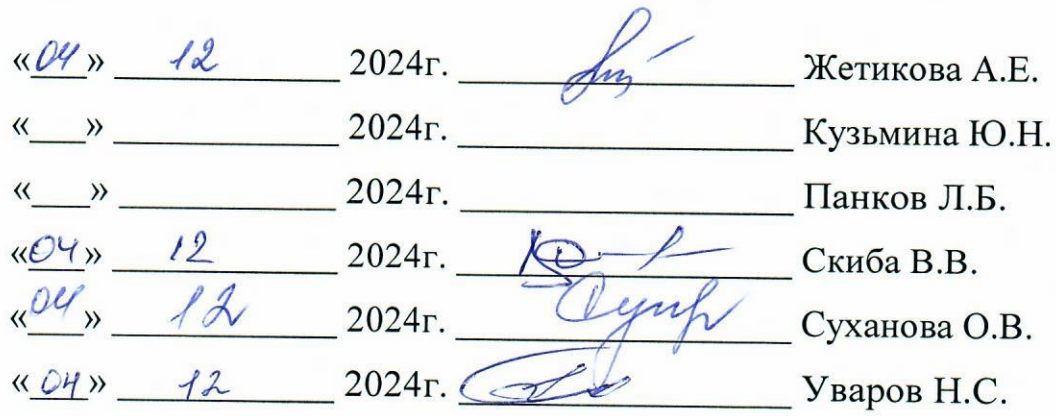 «04» 12 2024г. Жетикова А.Е.
«___» ____________ 2024г. ____________ Кузьмина Ю.Н.
«___» ____________ 2024г. ____________ Панков Л.Б.
«04» 12 2024г. Скиба В.В.
«04» 12 2024г. Суханова О.В.
«04» 12 2024г. Уваров Н.С.